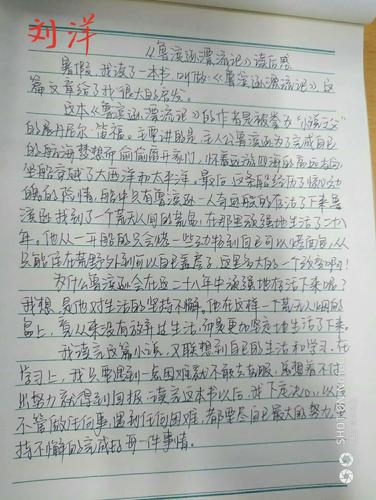 刘洋
《鲁滨逊漂流记》读后感
暑假,我读了一本书,叫做《鲁滨逊漂流记》这
篇文章给了我很大的启发。
这本《鲁滨逊漂流记》的作者是被拳为“小说之父”
的展丹尼尔·笛福。主要讲的是:主人公鲁滨逊为了完成自己
的航海梦想而偷偷离开家门,怀着远游四海的高远志向
坐船穿越了大西洋和太平洋。最后,这条船经历了惊心动
魄的险情,船中只有鲁滨逊一人奇迹般的存活了下来鲁
滨逊找到了一个荒无人间的荒岛,在那里顽强地生活了二十八
年。他从一开始的只会烧一些动物到自己可以烤面包,从
只能住在荒野外到可以自己盖房子,这是多大的一个改变啊!
为什么鲁滨逊会在这二十八年中顽强地存活下来呢?
我想,是他对生活的坚持不懈。他在这样一个荒无人烟的
岛上,有从来没有放弃过生活,而是更加坚定地生活了下来。
我读完这篇小说,又联想到自己的生活和学习。在
学习上,我只要遇到一点困难就不敢去克服,总想着不付
出努力就得到回报。读完这本书以后,我下定决心,以后
不管做任何事,遇到任何困难,都要尽自己最大的努力坚
持不懈的完成好每一件事情。
SHOT ON